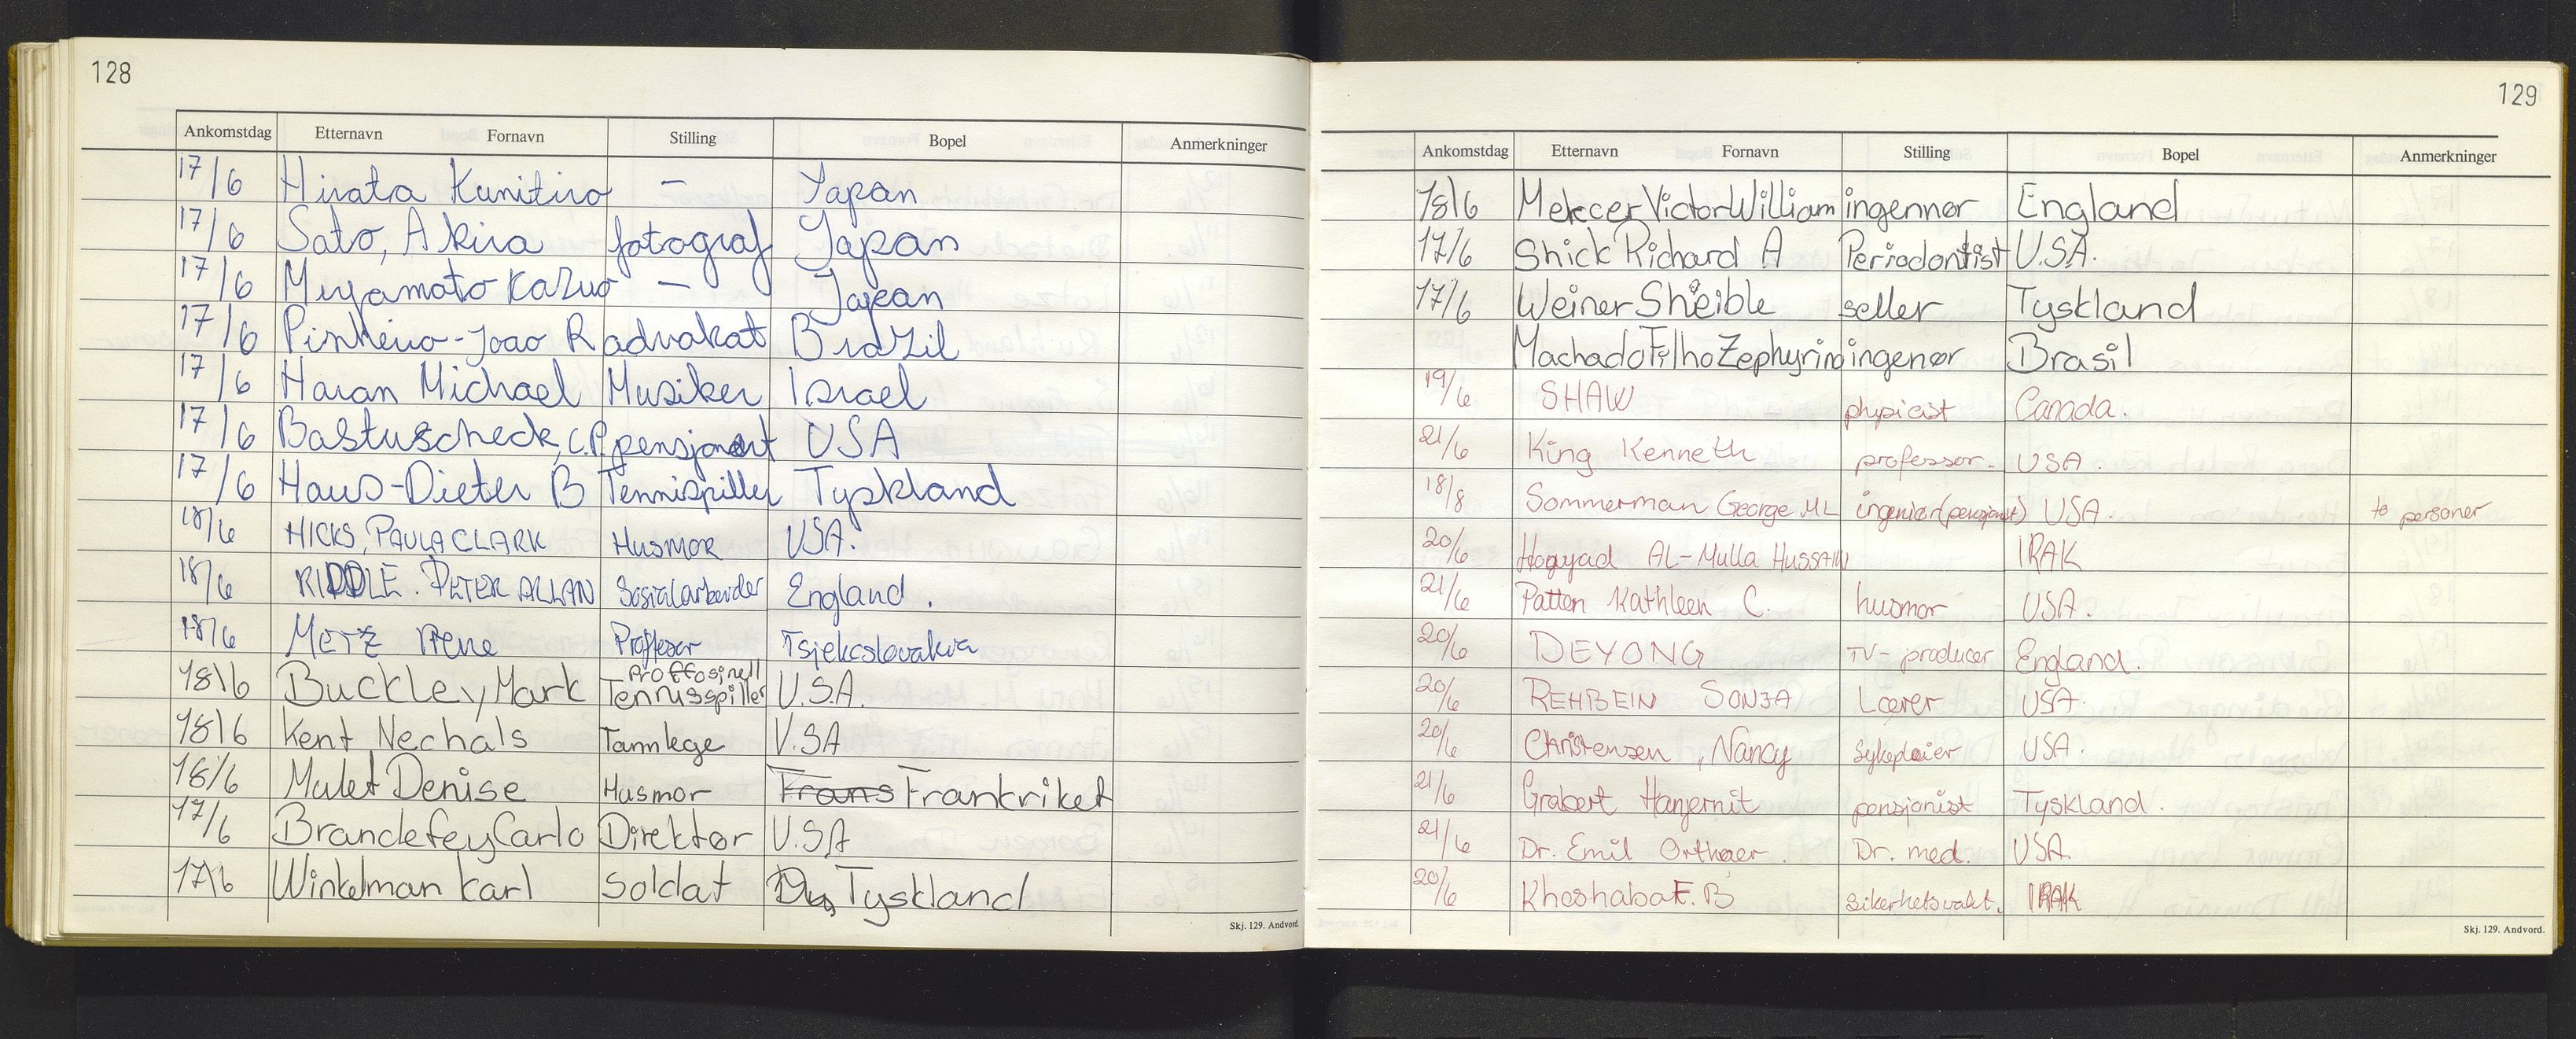 128
Ankomstdag Etternavn Fornavn Stilling Bopel Anmerkninger
17/6 Hirata Kunitiro — Japan
17/6 Sato, Akira fotograf Japan
17/6 Miyamoto Kazuo — Japan
17/6 Pinheiro-Joao R advakat Brazil
17/6 Haran Michael Musiker Israel
17/6 Bastuscheck, C.P. pensjonert USA
17/6 Haus-Dieter B Tennispiller Tyskland
18/6 HICKS, PAULA CLARK HUSMOR USA.
18/6 RIDDLE. PETER ALLAN Sosialarbeider England.
18/6 METZ Irene Proffesor Tsjekoslovakia
18/6 Buckley Mark Proffosinell Tennisspiller U.S.A.
18/6 Kent Nechals Tannlege U.SA
18/6 Mulet Denise Husmor Frans Frankriket
17/6 Brandefey Carlo Direktør U.SA
17/6 Winkelman Karl Soldat Tyskland
Skj. 129. Andvord.
129
Ankomstdag Etternavn Fornavn Stilling Bopel Anmerkninger
18/6 Mercer Victor William ingennør England
17/6 Shick Richard A Periodontist U.S.A.
17/6 Weiner Sheible seller Tyskland
Machado Filho Zephyrin ingenør Brasil
19/6 SHAW physicist Canada.
21/6 King Kenneth professor. USA.
18/8 Sommerman George ML ingeniør (pensjonist) USA. to personer
20/6 Hogyad AL-Mulla HUSSAIN IRAK
21/6 Patten Kathleen C. husmor USA.
20/6 DEYONG TV-producer England.
20/6 REHBEIN SONJA Lærer USA.
20/6 Christensen, Nancy Sykepleier USA.
21/6 Grabert Hanjernit pensjonist Tyskland.
21/6 Dr. Emil Orthaer. Dr. med. USA.
20/6 Khoshaba E. B sikerhetsvakt. IRAK
Skj. 129. Andvord.